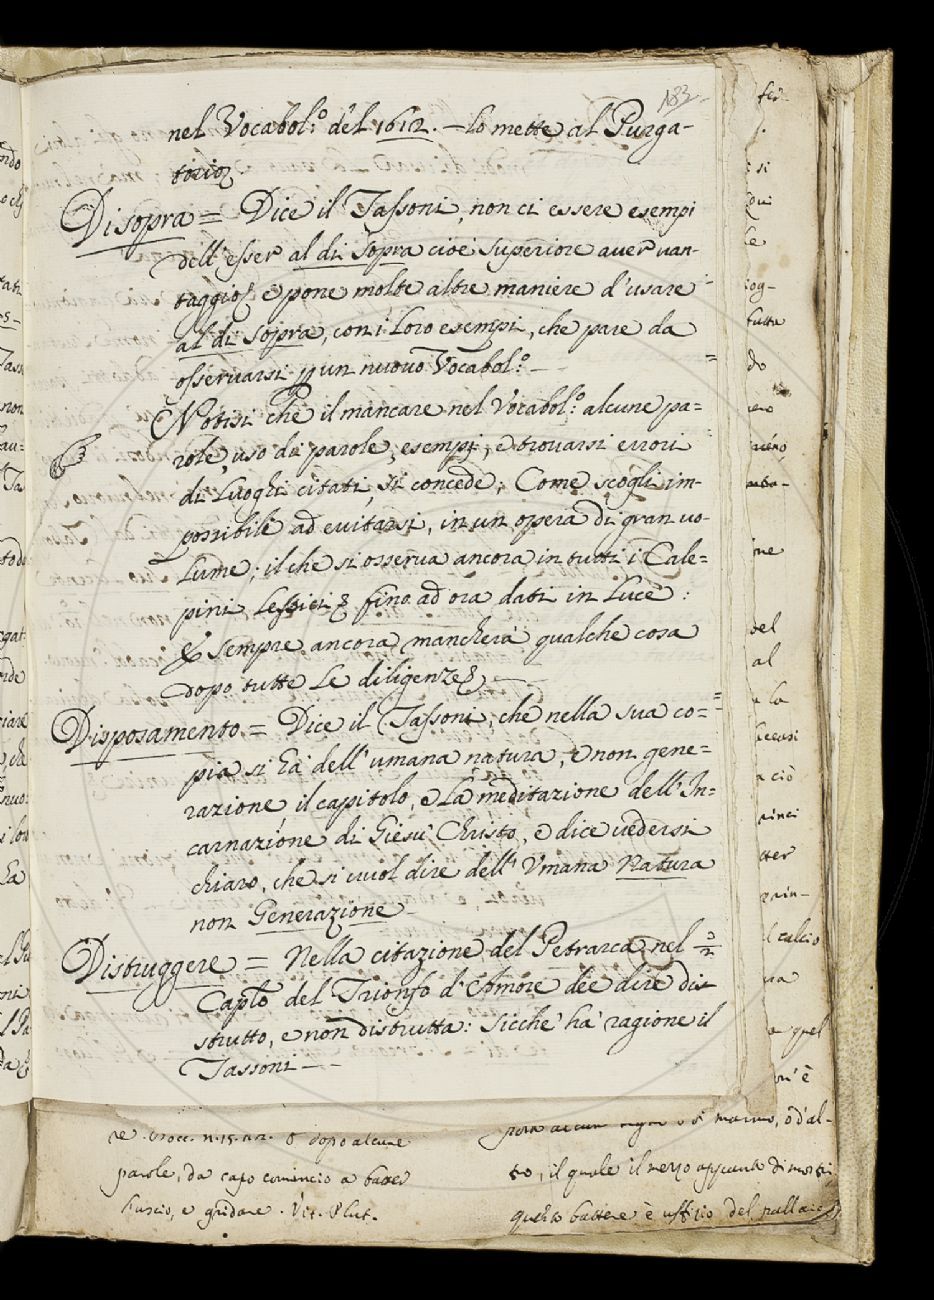 183
nel Vocabol.º del 1612. – lo mette al Purga-
torio
Disopra = Dice il Tassoni non ci essere esempi
dell'esser al di Sopra cioè superiore aver van-
taggio, e pone molte altre maniere d'usare
al di Sopra, con i loro esempi, che pare da
osservarsi p un nuovo Vocabol.º –
Notisi che il mancare nel Vocabol.º alcune pa=
role, uso di parole, esempj, e trovarsi errori
di Luoghi citati, si concede; Come scogli im-
possibile ad evitarsi, in un opera di gran vo-
lume; il che si osserva ancora in tutti i Cale=
pini Lessici, fino ad ora dati in Luce:
E sempre ancora mancherà qualche cosa
dopo tutte le diligenze –
Disposamento = Dice il Tassoni, che nella sua co=
pia si ha dell'umana natura, e non gene=
razione il capitolo, e la meditazione dell'In=
carnazione di Giesù Christo, e dice vedersi
chiaro, che si vuol dire dell'Umana Natura
non Generazione –
Distruggere = Nella citazione del Petrarca nel 2/2
Capto del Trionfo d'Amore dee dire dis
strutto, e non distrutta: sicche ha ragione il
Tassoni –
parole, da capo cominciò a batter
l'uscio, e gridare. Vit. Plut.
to, il quale il mezo appunto di
questo battere è uffizio del